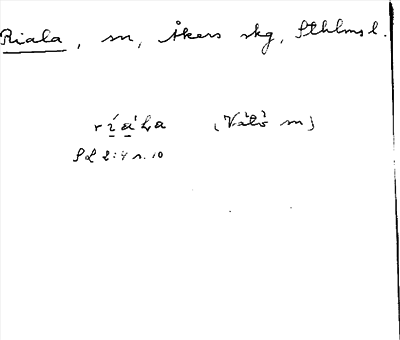 Riala, sn, Åkers skg, Sthlms l.
ríàla (Vätö sn)
SL 2:4 s. 10